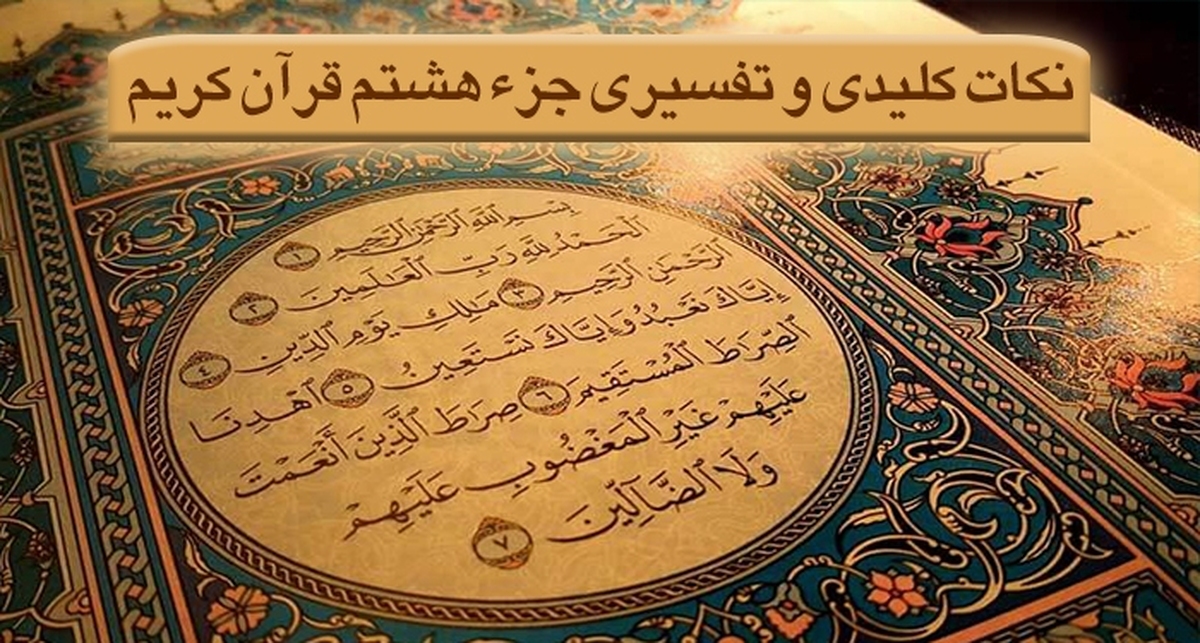 نکات کلیدی و تفسیری جزء هشتم قرآن کریم
بِسْمِ ٱللَّهِ ٱلرَّحْمَٰنِ ٱلرَّحِيمِ ١
ٱلْحَمْدُ لِلَّهِ رَبِّ ٱلْعَٰلَمِينَ ٢
ٱلرَّحْمَٰنِ ٱلرَّحِيمِ ٣ مَٰلِكِ يَوْمِ ٱلدِّينِ ٤
إِيَّاكَ نَعْبُدُ وَإِيَّاكَ نَسْتَعِينُ ٥ ٱهْدِنَا
ٱلصِّرَٰطَ ٱلْمُسْتَقِيمَ ٦ صِرَٰطَ ٱلَّذِينَ أَنْعَمْتَ
عَلَيْهِمْ غَيْرِ ٱلْمَغْضُوبِ عَلَيْهِمْ
وَلَا ٱلضَّآلِّينَ ٧